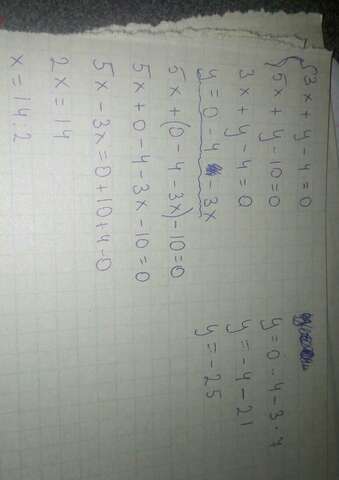 3x + y - 4 = 0
5x + y - 10 = 0
3x + y - 4 = 0
y = 0 - 4 - 3x
5x + (0 - 4 - 3x) - 10 = 0
5x + 0 - 4 - 3x - 10 = 0
5x - 3x = 0 + 10 + 4 - 0
2x = 14
x = 14:2
y = 0 - 4 - 3 · 7
y = -4 - 21
y = -25